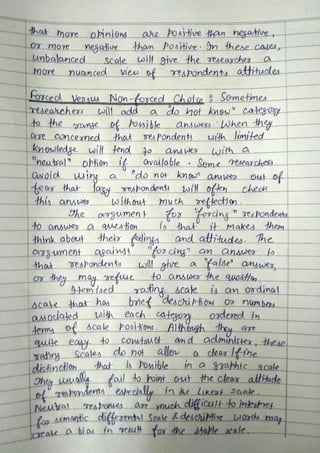 that more opinions are positive than negative,
or more negative than positive. In these cases,
unbalanced scale will give the researcher a
more nuanced view of respondents attitudes
Forced Versus Non-forced Choice : Sometimes
researchers will add a "do not know" category
to the range of possible answers. When they
are concerned that respondents with limited
knowledge will tend to answer with a
"neutral" option if available. Some researchers
avoid using a "do not know" answer out of
fear that lazy respondents will often check
this answer without much reflection.
The argument for "forcing" respondents
to answer a question is that it makes them
think about their feelings and attitudes. The
argument against "forcing" an answer is
that respondents will give a 'false' answer,
or they may refuse to answer the question.
Itemised rating scale is an ordinal
scale that has brief description or numbers
associated with each category ordered in
terms of scale positions. Although they are
quite easy to construct and administer, these
rating scales do not allow a clear & fine
distinction that is possible in a graphic scale.
They usually fail to point out the clear attitude
of respondents especially in the Likert scale.
Neutral responses are much difficult to interpret
for semantic differential scale & descriptive words may
create a bias in result for the staple scale.